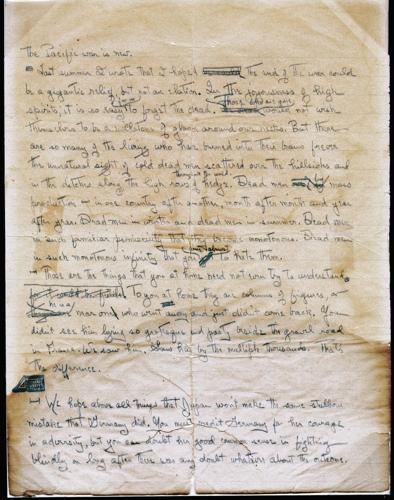 The Pacific war is
Last summer I wrote that I hoped the end of the war could
be a gigantic relief, but not an elation. In the joyousness of high
spirits, it is so easy for us to forget the dead. Those who are gone would not wish
themselves to be a millstone of gloom around our necks. But there
are so many of the living who have burned into their brains forever
the unnatural sight of cold dead men scattered over the hillsides and
in the ditches along the high rows of hedge throughout the world. Dead men by mass
production – in one country after another, month after month and year
after year. Dead men in winter and dead men in summer. Dead men
in such familiar promiscuity that they become monotonous. Dead men
in such monstrous infinity that you come almost to hate them.
Those are the things that you at home need not even try to understand.
To you at home they are columns of figures, or
he is a near one who went away and just didn't come back. You
didn't see him lying so grotesque and pasty beside the gravel road
in France. We saw him, saw him by the multiple thousands. That's
the difference.
We hope above all things that Japan won't make the same stubborn
mistake that Germany did. You must credit Germany for her courage
in adversity, but you can doubt her good common sense in fighting
blindly on long after there was any doubt whatever about the outcome.